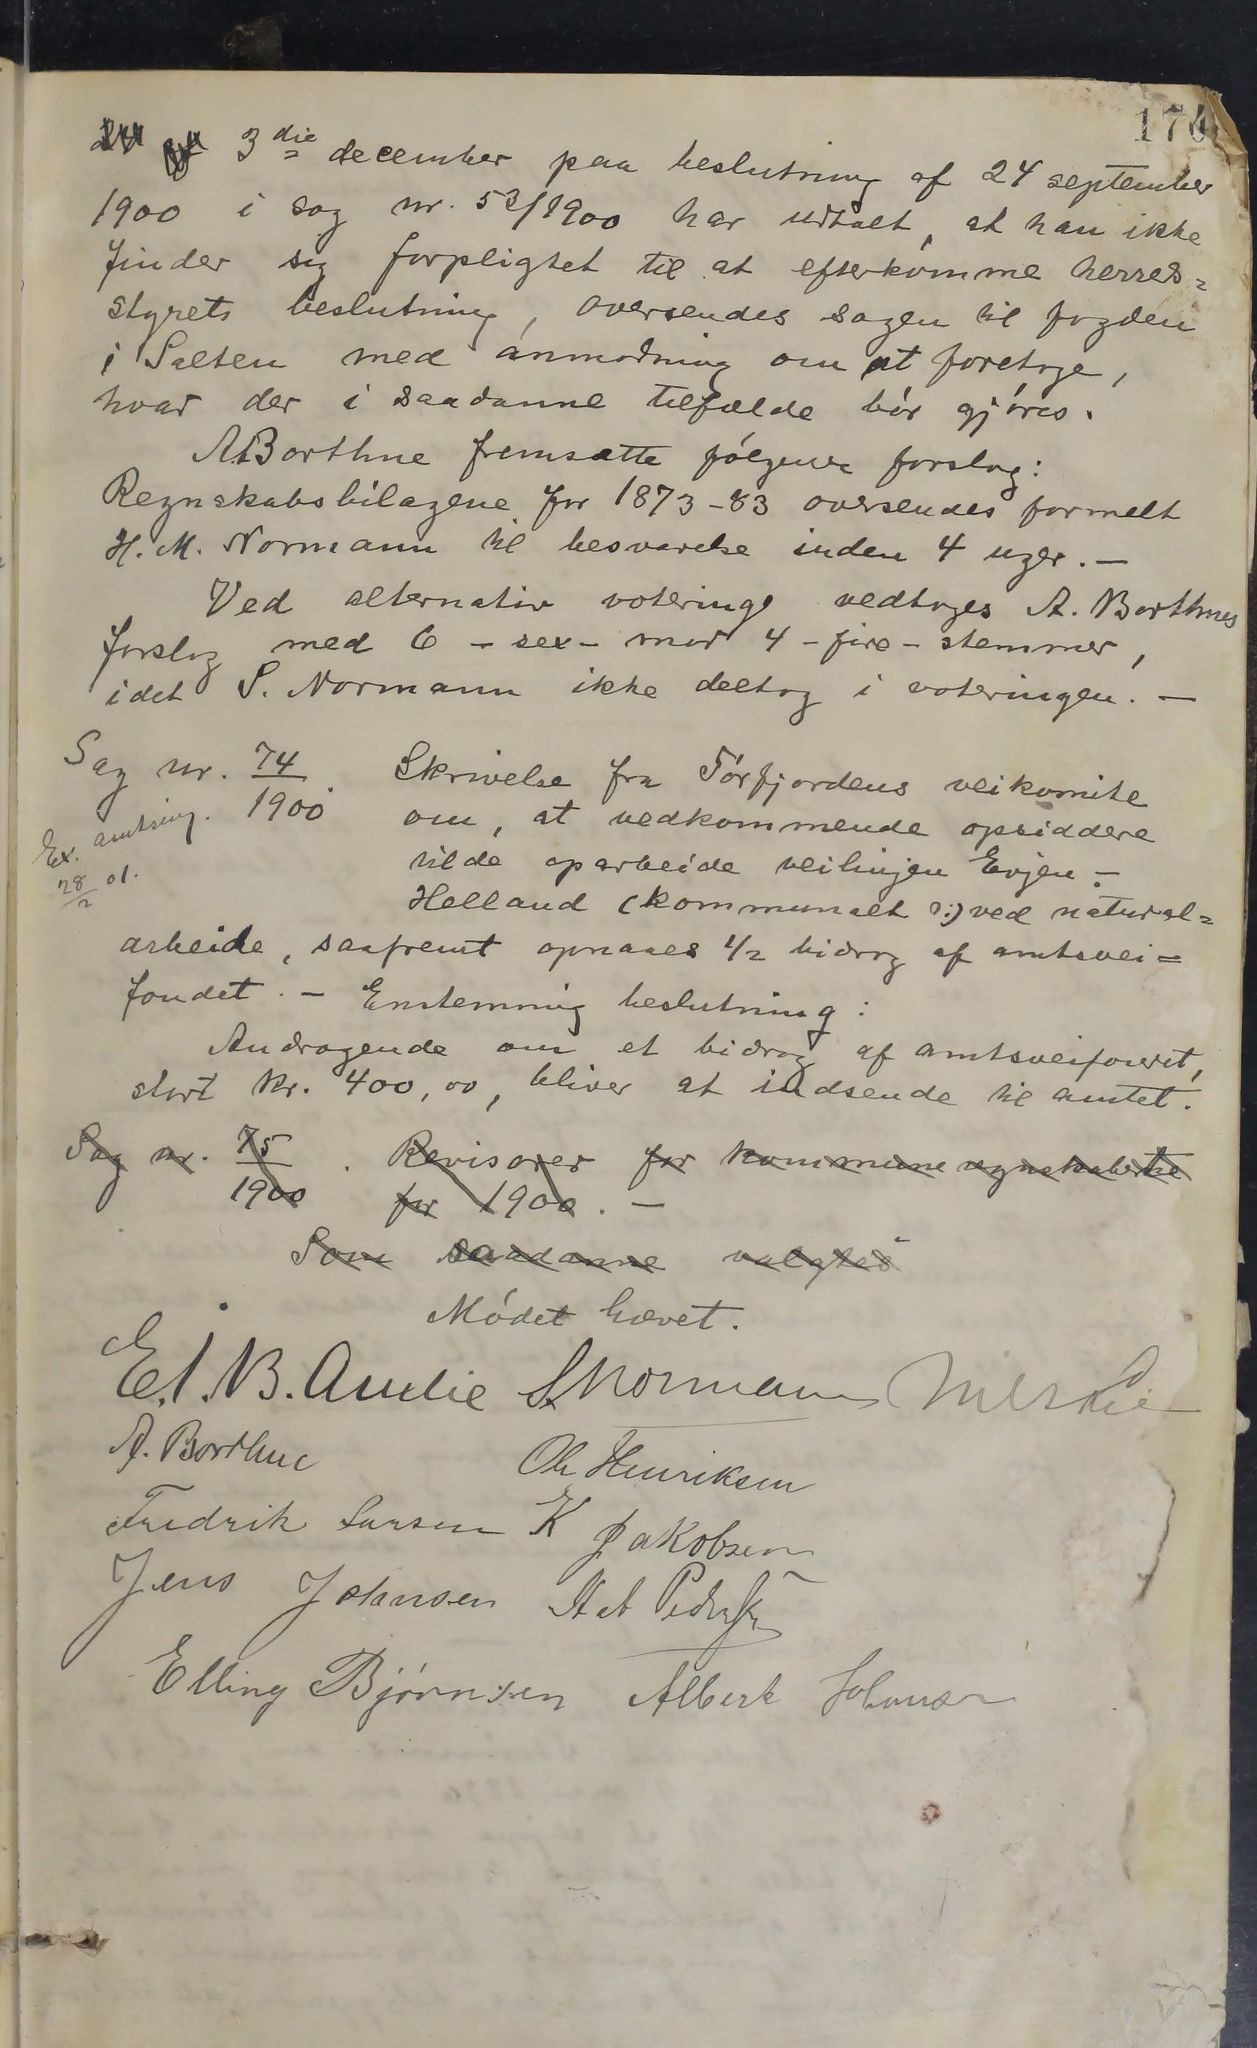 176
3die december paa beslutning af 24 september
1900 i sag nr. 53/1900 har udtalt, at han ikke
finder sig forpligtet til at efterkomme herreds=
styrets beslutning, oversendes sagen til fogden
i Salten med anmodning om at foretage,
hvad der i saadanne tilfælde bór gjóres.
A. Borthne fremsatte fólgende forslag:
Regnskabsbilagene for 1873-83 oversendes formelt
H. M. Normann til besvarelse inden 4 uger. —
Ved alternativ votering vedtoges A. Borthnes
forslag med 6 - sex - mod 4 - fire - stemmer,
idet S. Normann ikke deltog i voteringen. —
Sag nr. 74/1900 Skrivelse fra Tórfjordens veikomite
Ex. amtning. 28/2 01.
om, at vedkommende opsiddere
vilde oparbeide veilinjen Evjen -
Helland (kommunalt ɔ:) ved natural=
arbeide, saafremt opnaaes 1/2 bidrag af amtsvei=
fondet. - Enstemmig beslutning:
Andragende om et bidrag af amtsveifondet,
stort kr. 400,00, bliver at indsende til amtet.
Sag nr. 75/1900. Revisorer for kommuneregnskaberne
for 1900. —
Som saadanne valgtes
Módet hævet.
E. A. B. Audie S. Normann
A. Borthne Ole Henriksen
Fredrik Larsen K Jakobsen
Jens Johansen Pedersen
Elling Bjórnsen Albert Johansen